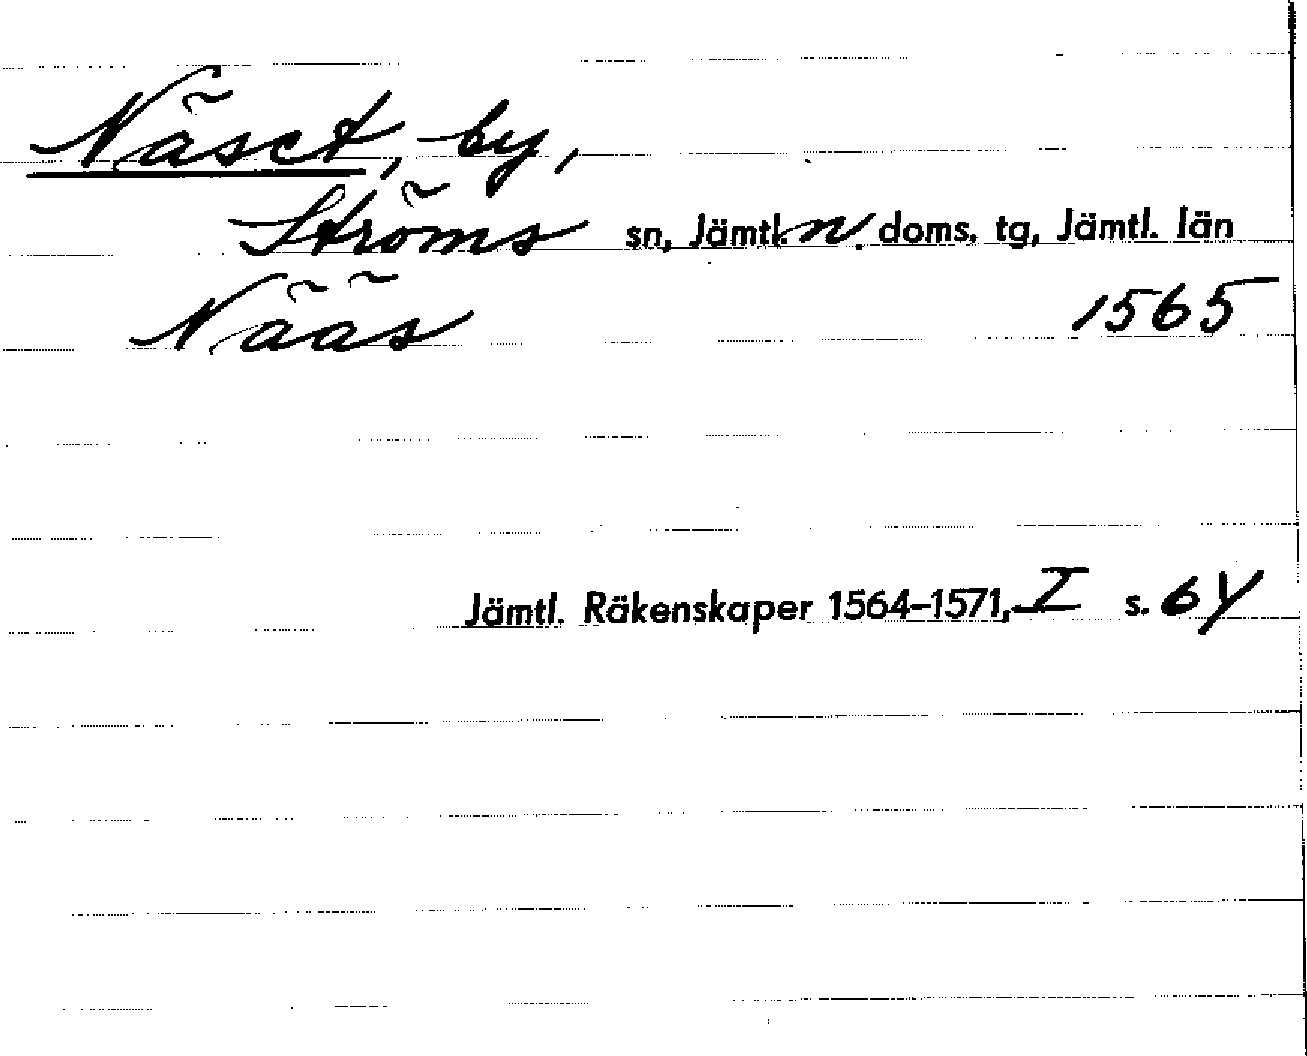 Näset, by,
Ströms sn, Jämtl. n. doms. tg, Jämtl. län
Nääs 1565
Jämtl. Räkenskaper 1564-1571, I s. 64